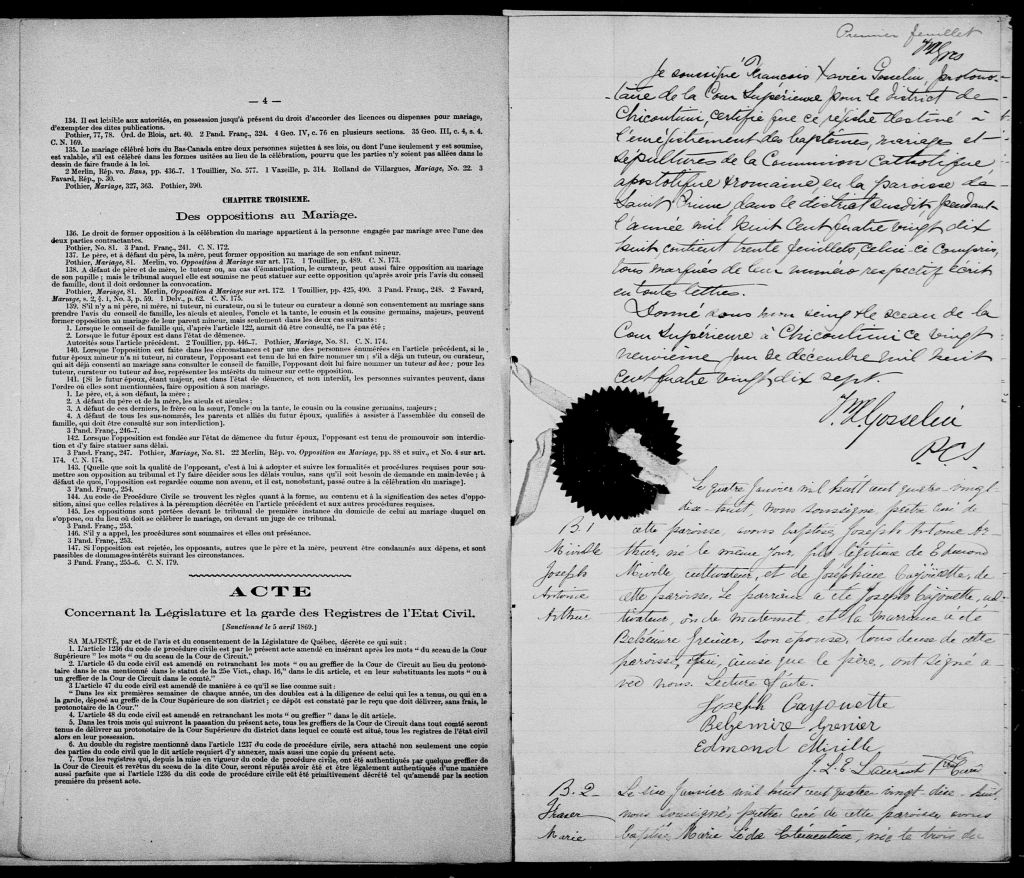 — 4 —
134. Il est loisible aux autorités, en possession jusqu'à présent du droit d'accorder des licences ou dispenses pour mariage,
d'exempter des dites publications.
Pothier, 77, 78. Ord. de Blois, art. 40. 2 Pand. Franç., 324. 4 Geo. IV, c. 76 en plusieurs sections. 35 Geo. III, c. 4, s. 4.
C. N. 169.
135. Le mariage célébré hors du Bas-Canada entre deux personnes sujettes à ses lois, ou dont l'une seulement y est soumise,
est valable, s'il est célébré dans les formes usitées au lieu de la célébration, pourvu que les parties n'y soient pas allées dans le
dessein de faire fraude à la loi.
2 Merlin, Rép. vo. Bans, pp. 436-7. 1 Touillier, No. 577. 1 Vazeille, p. 314. Rolland de Villargues, Mariage, No. 22. 3
Favard, Rép., p. 30.
Pothier, Mariage, 327, 363. Pothier, 390.
CHAPITRE TROISIEME.
Des oppositions au Mariage.
136. Le droit de former opposition à la célébration du mariage appartient à la personne engagée par mariage avec l'une des
deux parties contractantes.
Pothier, No. 81. 3 Pand. Franç., 241. C. N. 172.
137. Le père, et à défaut du père, la mère, peut former opposition au mariage de son enfant mineur.
Pothier, Mariage, 81. Merlin, vo. Opposition à Mariage sur art. 173. 1 Touillier, p. 489. C. N. 173.
138. A défaut de père et de mère, le tuteur ou, au cas d'émancipation, le curateur, peut aussi faire opposition au mariage
de son pupille; mais le tribunal auquel elle est soumise ne peut statuer sur cette opposition qu'après avoir pris l'avis du conseil
de famille, dont il doit ordonner la convocation.
Pothier, Mariage, 81. Merlin, Opposition à Mariage sur art. 172. 1 Touillier, pp. 425, 490. 3 Pand. Franç., 248. 2 Favard,
Mariage, s. 2, § 1, No. 3, p. 59. 1 Delv., p. 62. C. N. 175.
139. S'il n'y a ni père, ni mère, ni tuteur, ni curateur, ou si le tuteur ou curateur a donné son consentement au mariage sans
prendre l'avis du conseil de famille, les aïeuls et aïeules, l'oncle et la tante, le cousin et la cousine germains, majeurs, peuvent
former opposition au mariage de leur parent mineur, mais seulement dans les deux cas suivants:
1. Lorsque le conseil de famille qui, d'après l'article 122, aurait dû être consulté, ne l'a pas été;
2. Lorsque le futur époux est dans l'état de démence.
Autorités sous l'article précédent. 2 Touillier, pp. 446-7. Pothier, Mariage, No. 81. C. N. 174.
140. Lorsque l'opposition est faite dans les circonstances et par une des personnes énumérées en l'article précédent, si le
futur époux mineur n'a ni tuteur, ni curateur, l'opposant est tenu de lui en faire nommer un; s'il a déjà un tuteur, ou curateur,
qui ait déjà consenti au mariage sans consulter le conseil de famille, l'opposant doit lui faire nommer un tuteur ad hoc; pour les
tuteur, curateur ou tuteur ad hoc, représenter les intérêts du mineur sur cette opposition.
141. [Si le futur époux, étant majeur, est dans l'état de démence, et non interdit, les personnes suivantes peuvent, dans
l'ordre où elles sont mentionnées, faire opposition à son mariage.
1. Le père, et, à son défaut, la mère;
2. A défaut du père et de la mère, les aïeuls et aïeules;
3. A défaut de ces derniers, le frère ou la sœur, l'oncle ou la tante, le cousin ou la cousine germains, majeurs;
4. A défaut de tous les sus-nommés, les parents et alliés du futur époux, qualifiés à assister à l'assemblée du conseil de
famille, qui doit être consulté sur son interdiction].
3 Pand. Franç., 246-7.
142. Lorsque l'opposition est fondée sur l'état de démence du futur époux, l'opposant est tenu de promouvoir son interdiction
et d'y faire statuer sans délai.
3 Pand. Franç., 247. Pothier, Mariage, No. 81. 22 Merlin, Rép. vo. Opposition au Mariage, pp. 88 et suiv., et No. 4 sur art.
174. C. N. 174.
143. [Quelle que soit la qualité de l'opposant, c'est à lui à adopter et suivre les formalités et procédures requises pour soumettre
son opposition au tribunal et l'y faire décider sous les délais voulus, sans qu'il soit besoin de demande en main-levée; à
défaut de quoi, l'opposition est regardée comme non avenu, et il est, nonobstant, passé outre à la célébration du mariage].
3 Pand. Franç., 254.
144. Au code de Procédure Civile se trouvent les règles quant à la forme, au contenu et à la signification des actes d'opposition,
ainsi que celles relatives à la péremption décrétée en l'article précédent et aux autres procédures requises.
145. Les oppositions sont portées devant le tribunal de première instance du domicile de celui au mariage duquel on
s'oppose, ou du lieu où doit se célébrer le mariage, ou devant un juge de ce tribunal.
3 Pand. Franç., 253.
146. S'il y a appel, les procédures sont sommaires et elles ont préséance.
3 Pand. Franç., 253.
147. Si l'opposition est rejetée, les opposants, autres que le père et la mère, peuvent être condamnés aux dépens, et sont
passibles de dommages-intérêts suivant les circonstances.
3 Pand. Franç., 255-6. C. N. 179.
ACTE
Concernant la Législature et la garde des Registres de l'Etat Civil.
[Sanctionné le 5 avril 1869.]
SA MAJESTÉ, par et de l'avis et du consentement de la Législature de Québec, décrète ce qui suit:
1. L'article 1236 du code de procédure civile est par le présent acte amendé en insérant après les mots " du sceau de la Cour
Supérieure " les mots " ou du sceau de la Cour de Circuit."
2. L'article 45 du code civil est amendé en retranchant les mots " ou au greffier de la Cour de Circuit au lieu du protonotaire
dans le cas mentionné dans le statut de la 25e Vict., chap. 16," dans le dit article, et en leur substituants les mots " ou à
un greffier de la Cour de Circuit dans le comté."
3 L'article 47 du code civil est amendé de manière à ce qu'il se lise comme suit:
" Dans les six premières semaines de chaque année, un des doubles est à la diligence de celui qui les a tenus, ou qui en a
la garde, déposé au greffe de la Cour Supérieure de son district; ce dépôt est constaté par le reçu que doit délivrer, sans frais, le
protonotaire de la Cour."
4. L'article 48 du code civil est amendé en retranchant les mots " ou greffier " dans le dit article.
5. Dans les trois mois qui suivront la passation du présent acte, tous les greffiers de la Cour de Circuit dans tout comté seront
tenus de délivrer au protonotaire de la Cour Supérieure du district dans lequel ce comté est situé, tous les registres de l'état civil
alors en leur possession.
6. Au double du registre mentionné dans l'article 1237 du code de procédure civile, sera attaché non seulement une copie
des parties du code civil que le dit article requiert d'y annexer, mais aussi une copie du présent acte.
7. Tous les registres qui, depuis la mise en vigueur du code de procédure civile, ont été authentiqués par quelque greffier de
la Cour de Circuit et revêtus du sceau de la dite Cour, seront réputés avoir été et être légalement authentiqués d'une manière
aussi parfaite que si l'article 1236 du dit code de procédure civile eût été primitivement décrété tel qu'amendé par la section
première du présent acte.
Premier feuillet
Je soussigné François Xavier Gosselin, protono-
taire de la Cour Supérieure pour le district de
Chicoutimi, certifie que ce régistre destiné à
l'enrégistrement des baptêmes, mariages et
sépultures de la Communion Catholique
apostolique & romaine en la paroisse de
Saint Prime dans le district susdit, pendant
l'année mil huit Cent quatre vingt dix
huit contient trente feuillets, celui-ci Compris,
tous marqués de leur numéro respectif écrit
en toutes lettres.
Donné sous mon seing & le sceau de la
Cour Supérieure à Chicoutimi ce vingt
neuvième jour de décembre mil huit
Cent quatre vingt dix sept.
Gosselin
P.C.S.
Le quatre janvier mil huit cent quatre-vingt
dix-huit, nous soussigné, prêtre curé de
B. 1 cette paroisse, avons baptisé Joseph Antoine Ar-
Miville thur, né le même jour, fils légitime de Edmond
Joseph Miville, cultivateur, et de Joséphine Cayouette, de
Antoine cette paroisse. Le parrain a été Joseph Cayouette, cul-
Arthur tivateur, oncle maternel, et la marraine a été
Belzémire Grenier, son épouse, tous deux de cette
paroisse, qui, ainsi que le père, ont signé a-
vec nous. Lecture faite.
Joseph Cayouette
Belzemire Grenier
Edmond Miville
J. L. E. Laurent Ptre Curé
B. 2 Le six janvier mil huit cent quatre vingt dix-huit,
Fraser nous soussigné, prêtre curé de cette paroisse avons
Marie baptisé Marie Léda Clémentine, née le trois du